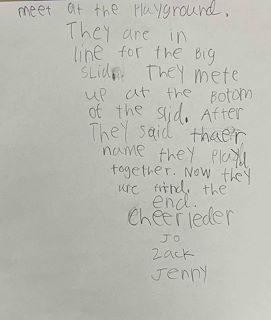 meet at the playground.
They are in
line for the Big
slid. They mete
up at the Bottom
of the slid. After
They said thaer
name they playd
together. Now they
are frind. the
end.
Cheerleder
Jo
Zack
Jenny